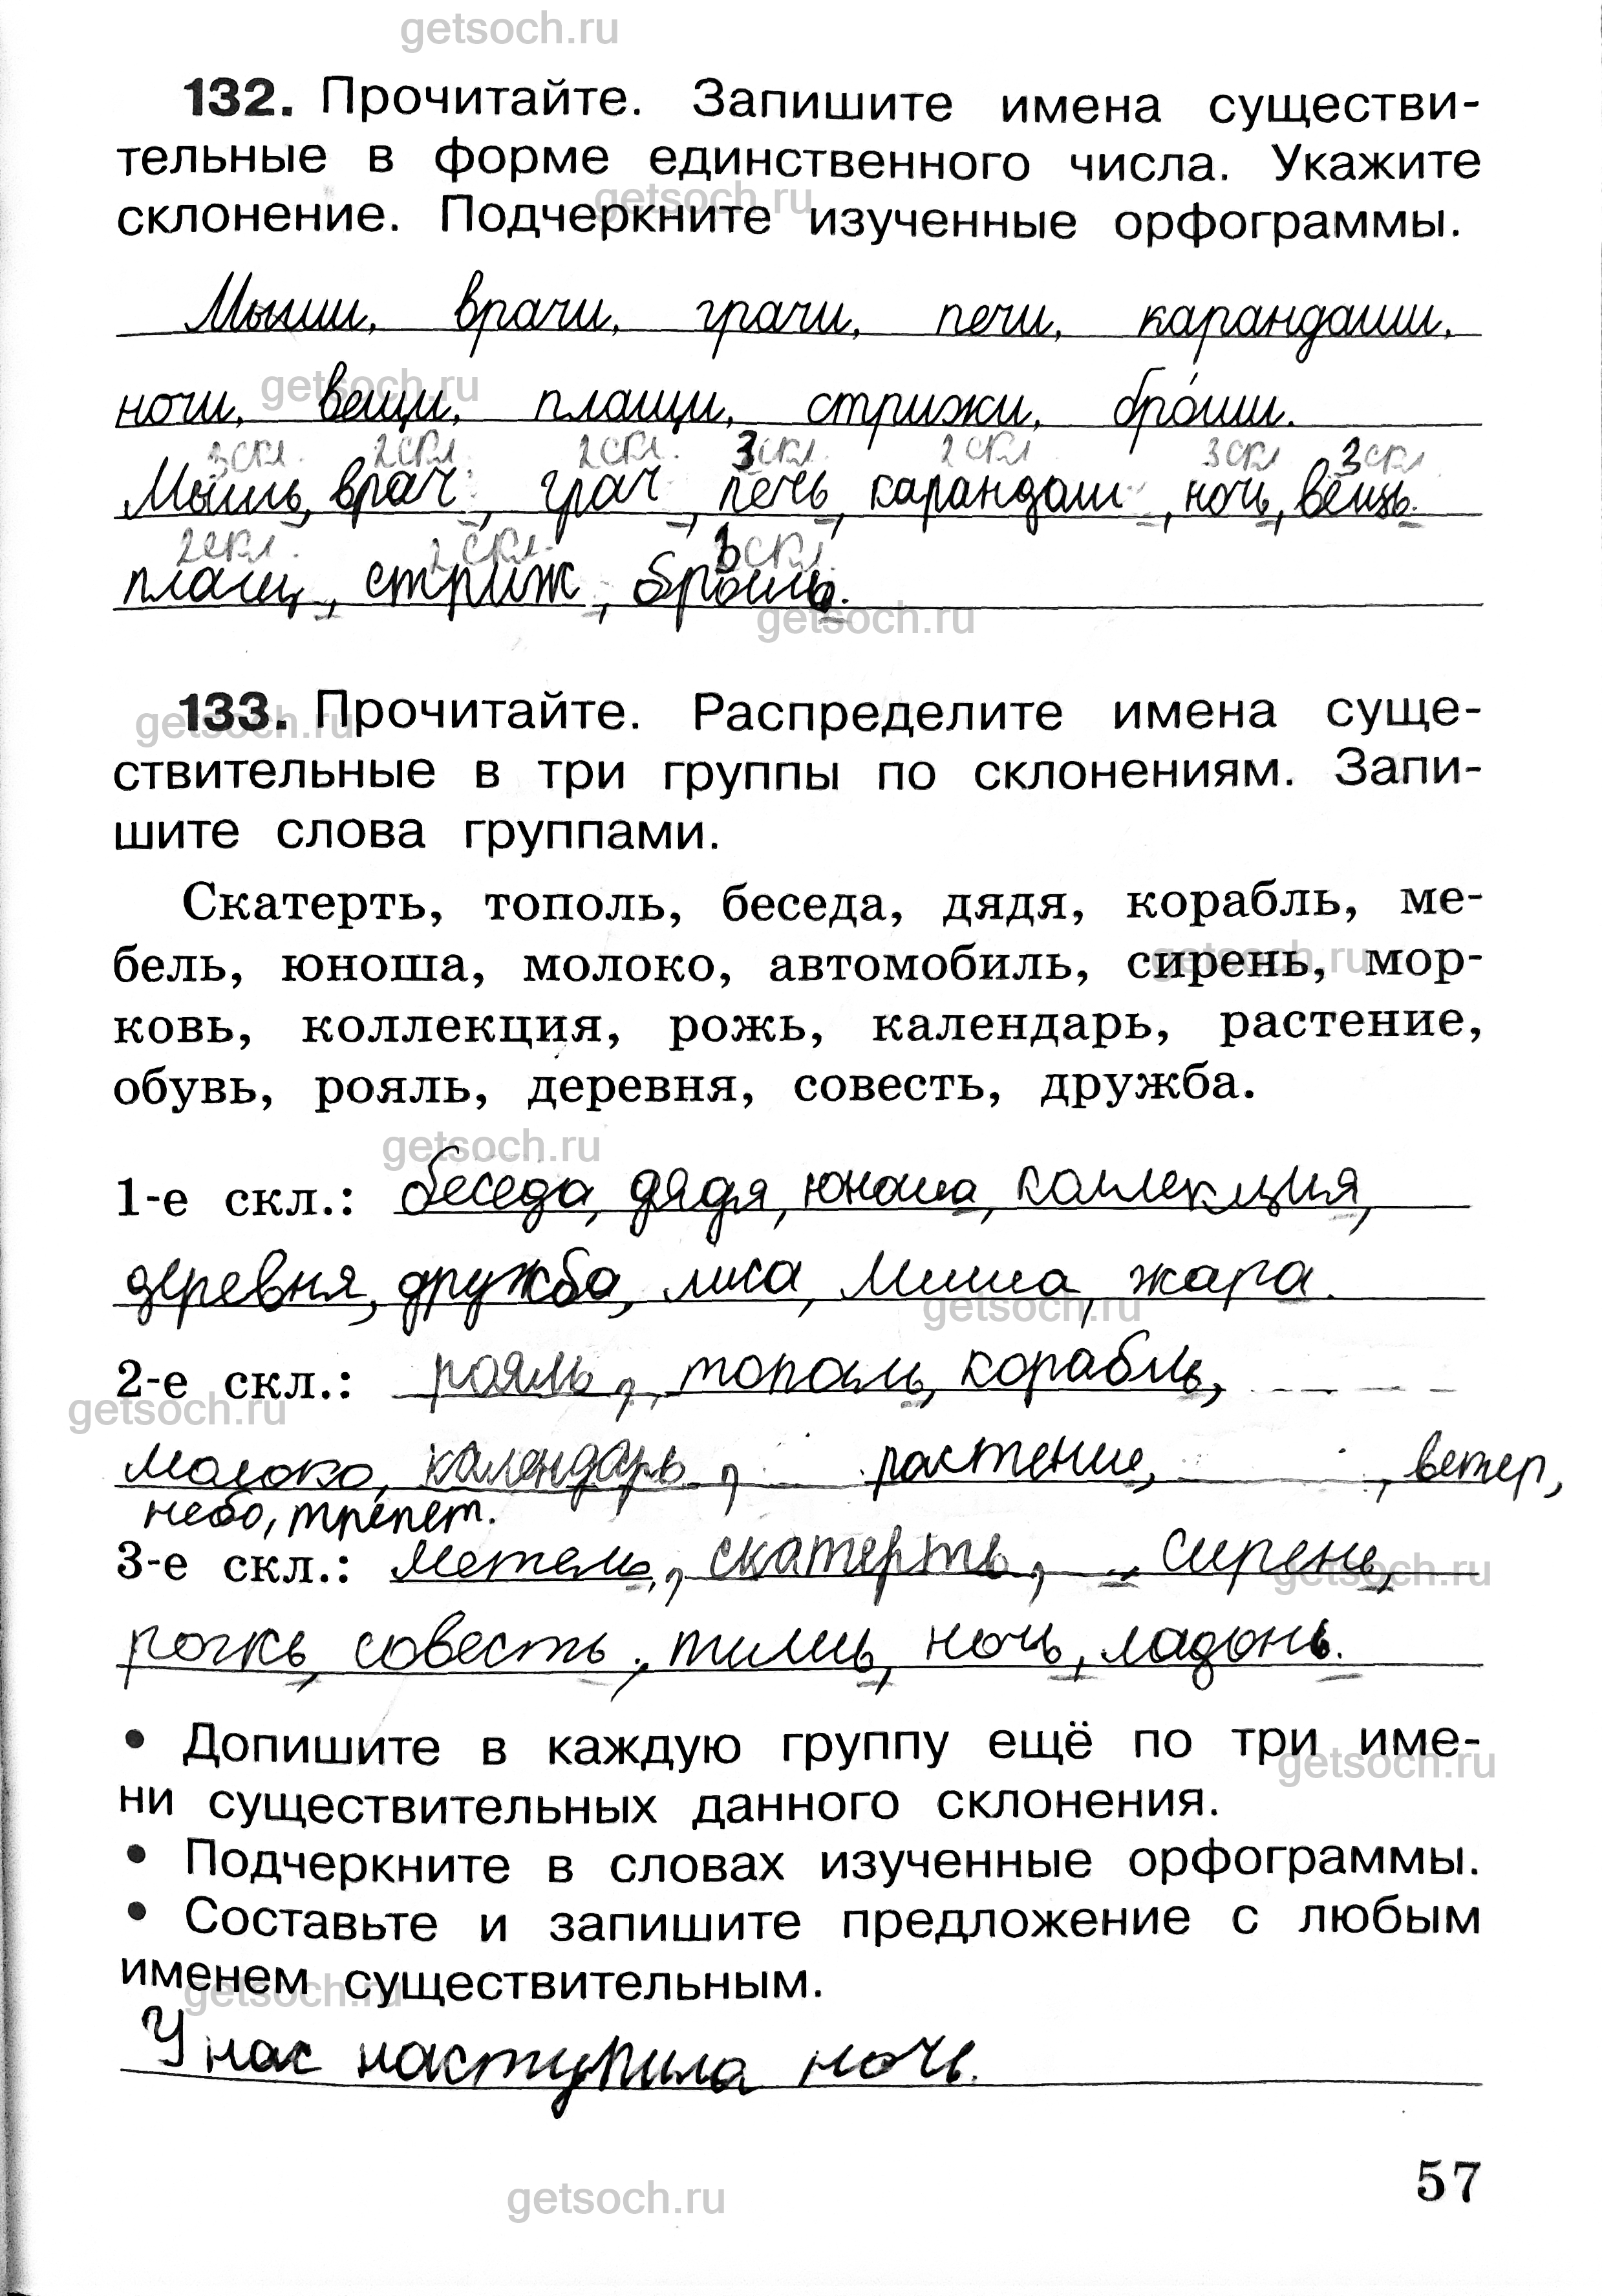 getsoch.ru
132. Прочитайте. Запишите имена существи-
тельные в форме единственного числа. Укажите
getsoch.ru
склонение. Подчеркните изученные орфограммы.
Мыши, врачи, грачи, печи, карандаши,
getsoch.ru
ночи, вещи, плащи, стрижи, бро́ши.
3скл. 2скл. 2скл. 3скл. 2скл 3скл 3скл.
Мышь, врач, грач, печь, карандаш, ночь, вещь.
2скл. 2скл. 3скл.
плащ, стриж, брошь.
getsoch.ru
133. Прочитайте. Распределите имена суще-
getsoch.ru
ствительные в три группы по склонениям. Запи-
шите слова группами.
Скатерть, тополь, беседа, дядя, корабль, ме-
бель, юноша, молоко, автомобиль, сирень, мор-
getsoch.ru
ковь, коллекция, рожь, календарь, растение,
обувь, рояль, деревня, совесть, дружба.
getsoch.ru
1-е скл.: беседа, дядя, юноша, коллекция,
деревня, дружба, лиса, Миша, жара.
getsoch.ru
2-е скл.: рояль, тополь, корабль,
getsoch.ru
молоко, календарь, растение, ветер,
небо, трепет.
3-е скл.: метель, скатерть, сирень,
getsoch.ru
рожь, совесть, тишь, ночь, ладонь.
• Допишите в каждую группу ещё по три име-
getsoch.ru
ни существительных данного склонения.
• Подчеркните в словах изученные орфограммы.
• Составьте и запишите предложение с любым
именем существительным.
getsoch.ru
У нас наступила ночь.
57
getsoch.ru